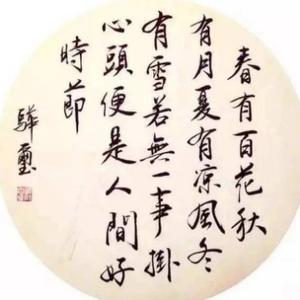 春有百花秋
有月夏有凉風冬
有雪若無一事掛
心頭便是人間好
時節